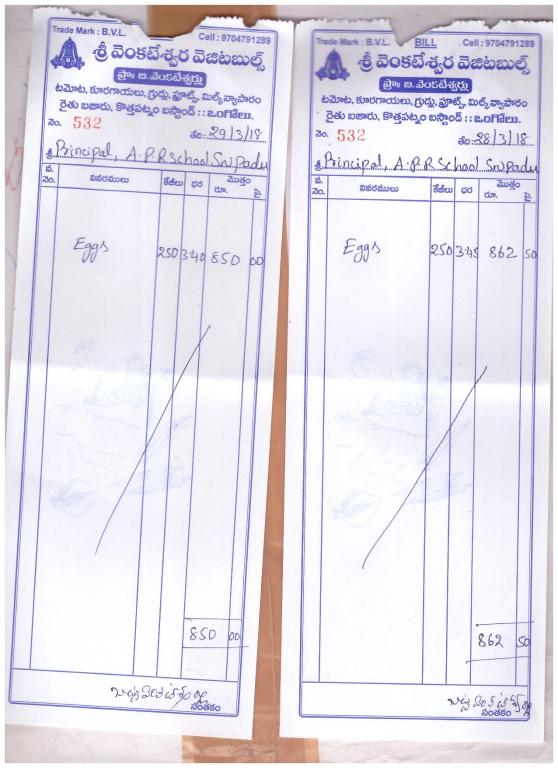 Trade Mark : B.V.L. Cell : 9704791289
శ్రీ వెంకటేశ్వర వెజిటబుల్స్
ప్రొః బి.వెంకటేశ్వర్లు
టమోట, కూరగాయలు, గ్రుడ్లు, ఫ్రూట్స్, మిల్క్ వ్యాపారం
రైతు బజారు, కొత్తపట్నం బస్టాండ్ :: ఒంగోలు.
నెం. 532 తేం: 29/3/18
శ్రీ Principal, A.P.R School Snpadu
వ. నెం. వివరములు కేజీలు ధర మొత్తం రూ. పై.
Eggs 250 3.40 850 00
850 00
సంతకం
Trade Mark : B.V.L. BILL Cell : 9704791289
శ్రీ వెంకటేశ్వర వెజిటబుల్స్
ప్రొః బి.వెంకటేశ్వర్లు
టమోట, కూరగాయలు, గ్రుడ్లు, ఫ్రూట్స్, మిల్క్ వ్యాపారం
రైతు బజారు, కొత్తపట్నం బస్టాండ్ :: ఒంగోలు.
నెం. 532 తేం: 28/3/18
శ్రీ Principal, A.P.R School Snpadu
వ. నెం. వివరములు కేజీలు ధర మొత్తం రూ. పై.
Eggs 250 3.45 862 50
862 50
సంతకం